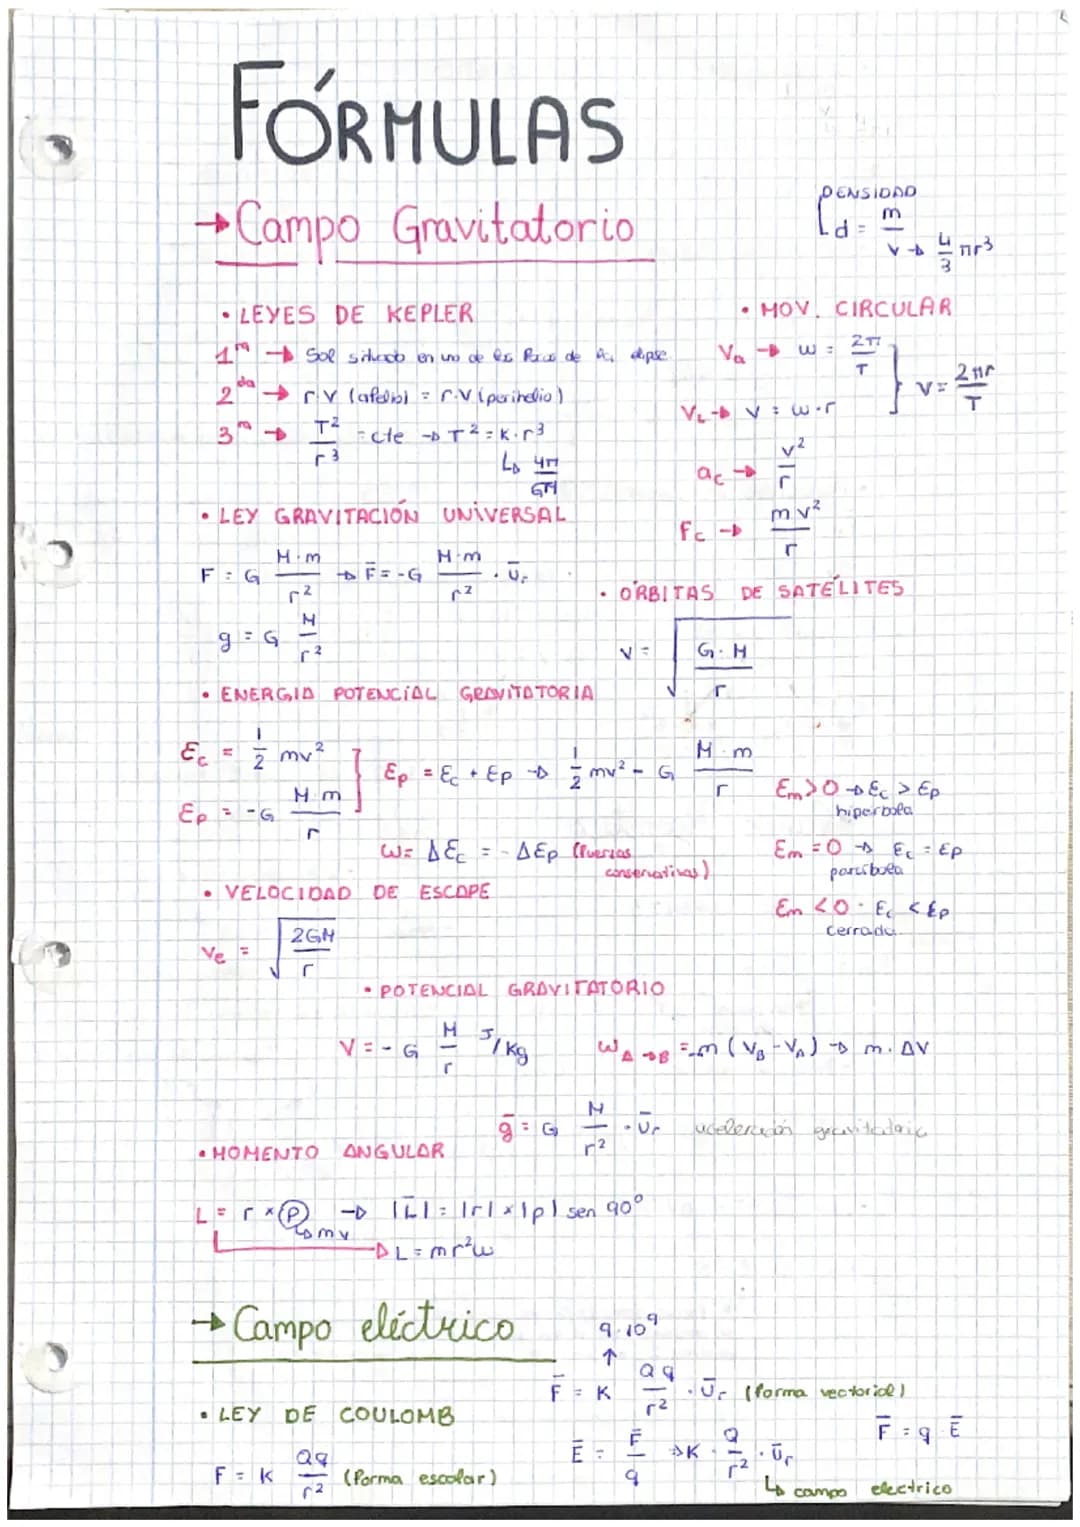 FÓRMULAS
→ Campo Gravitatorio
DENSIDAD
d = m/v → 4/3 πr³
• LEYES DE KEPLER
1ra → Sol situado en uno de los focos de la elipse
2da → r.v (afelio) = r.v (perihelio)
3ra → T²/r³ = cte → T² = K·r³
↳ 4π/GM
• MOV. CIRCULAR
Va → w = 2π/T
VL → v = w·r
} v = 2πr/T
ac → v²/r
Fc → mv²/r
• LEY GRAVITACIÓN UNIVERSAL
F = G M·m/r² → F̄ = -G M·m/r² · Ūr
g = G M/r²
• ÓRBITAS DE SATÉLITES
v = √(G·M/r)
• ENERGIA POTENCIAL GRAVITATORIA
Ec = 1/2 mv²
Ep = -G M·m/r
Ep = Ec + Ep → 1/2 mv² - G M·m/r
W = ΔEc = -ΔEp (fuerzas conservativas)
Em > 0 → Ec > Ep
hiperbola
Em = 0 → Ec = Ep
parábola
Em < 0 · Ec < Ep
cerrada
• VELOCIDAD DE ESCAPE
Ve = √(2GM/r)
• POTENCIAL GRAVITATORIO
V = -G M/r J/Kg
W A→B = -m (VB - VA) → m.ΔV
ḡ = G M/r² · Ūr aceleración gravitatoria
• MOMENTO ANGULAR
L = r × p → |L̄| = |r| × |p| sen 90°
↳ mv
→ L = mr²w
→ Campo eléctrico
• LEY DE COULOMB
F = K Qq/r² (forma escolar)
9·10⁹
↑
F̄ = K Qq/r² · Ūr (forma vectorial)
Ē = F̄/q → K · Q/r² · Ūr
↳ campo electrico
F̄ = q Ē